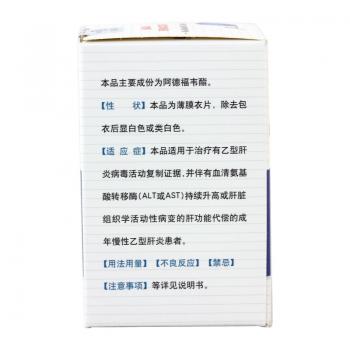 本品主要成份为阿德福韦酯。
【性 状】本品为薄膜衣片，除去包
衣后显白色或类白色。
【适 应 症】本品适用于治疗有乙型肝
炎病毒活动复制证据，并伴有血清氨基
酸转移酶(ALT或AST)持续升高或肝脏
组织学活动性病变的肝功能代偿的成
年慢性乙型肝炎患者。
【用法用量】【不良反应】【禁忌】
【注意事项】等详见说明书。